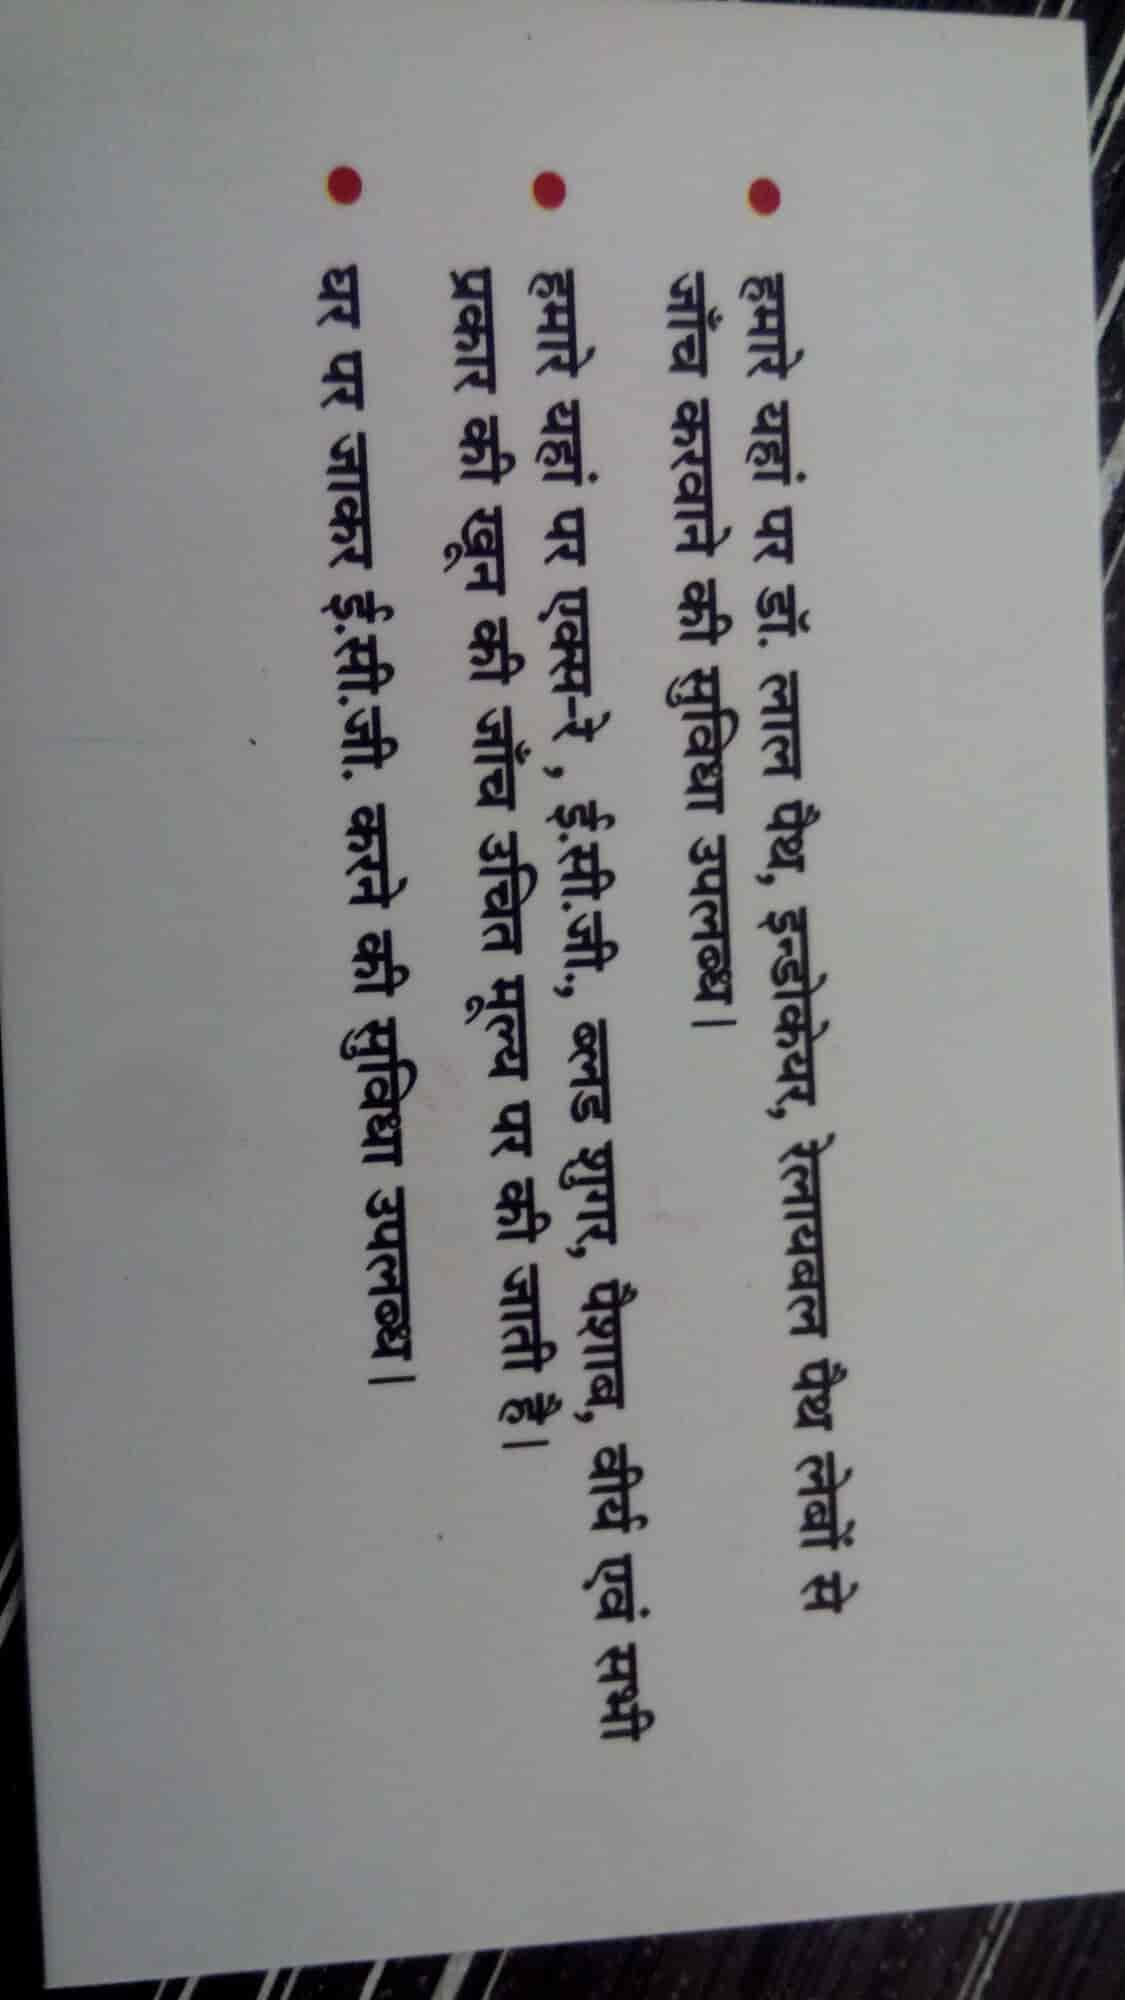 • हमारे यहां पर डॉ. लाल पैथ, इन्डोकेयर, रेलायबल पैथ लेबों से
जाँच करवाने की सुविधा उपलब्ध।
• हमारे यहां पर एक्स-रे , ई.सी.जी., ब्लड शुगर, पैशाब, वीर्य एवं सभी
प्रकार की खून की जाँच उचित मूल्य पर की जाती है।
• घर पर जाकर ई.सी.जी. करने की सुविधा उपलब्ध।